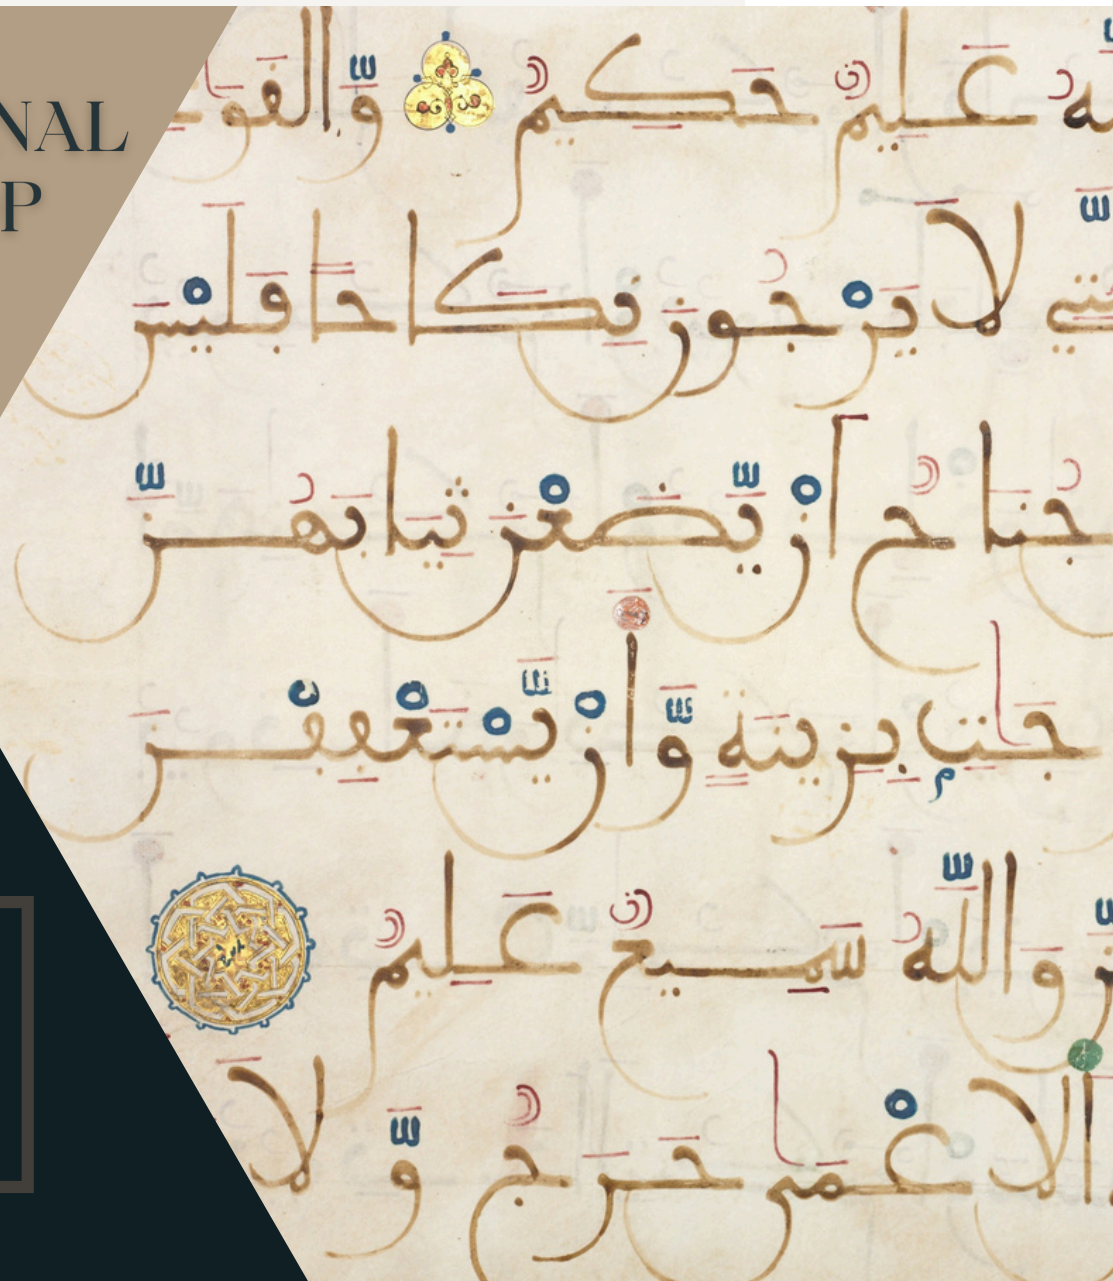 NAL
P
ـهُ عَلِيمٌ حَكِيمٌ وَّالقَوَٰ
ـتِي لَا يَرْجُونَ نِكَاحًا فَلَيْسَ
جُنَاحٌ أَنْ يَّضَعْنَ ثِيَابَهُنَّ
ـجَٰتٍ بِزِينَةٍ وَّأَنْ يَّسْتَعْفِفْنَ
ـنَّ وَاللَّهُ سَمِيعٌ عَلِيمٌ
الَاعْمَىٰ حَرَجٌ وَّلَا